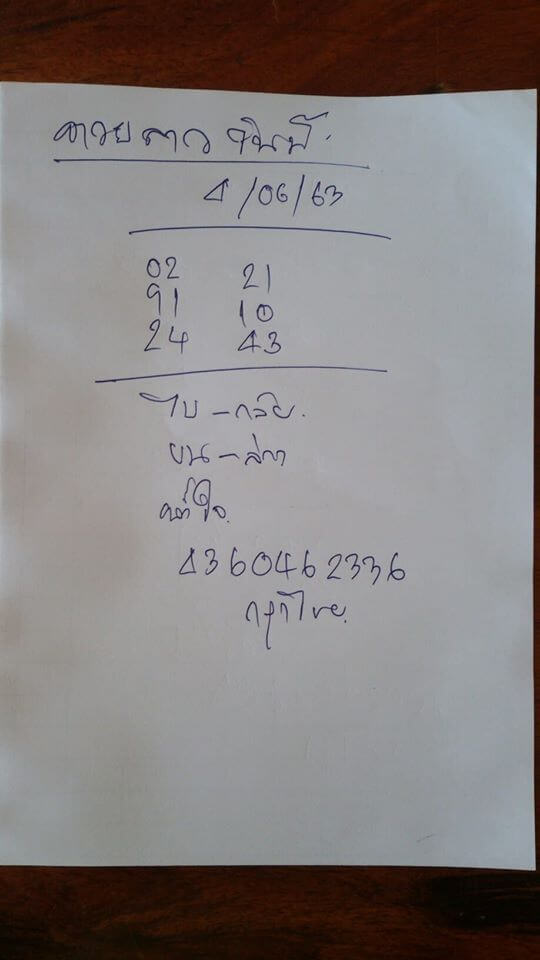 หวย ลาว วันนี้
4/06/63
02 21
91 10
24 43
ไป - กลับ
บน - ล่าง
4360462336
กรุงไทย